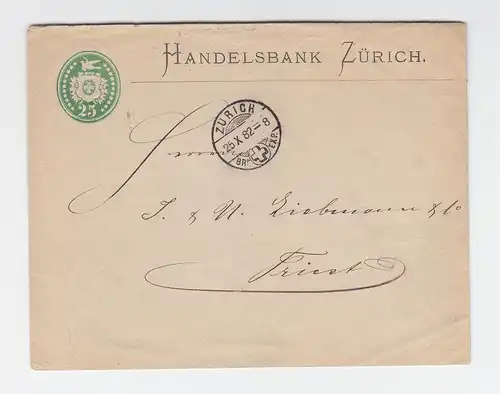 HANDELSBANK ZÜRICH.
25
ZÜRICH
25 X 82-8
BR. EXP.
Herren
J. & N. Liebmann & Co
Triest